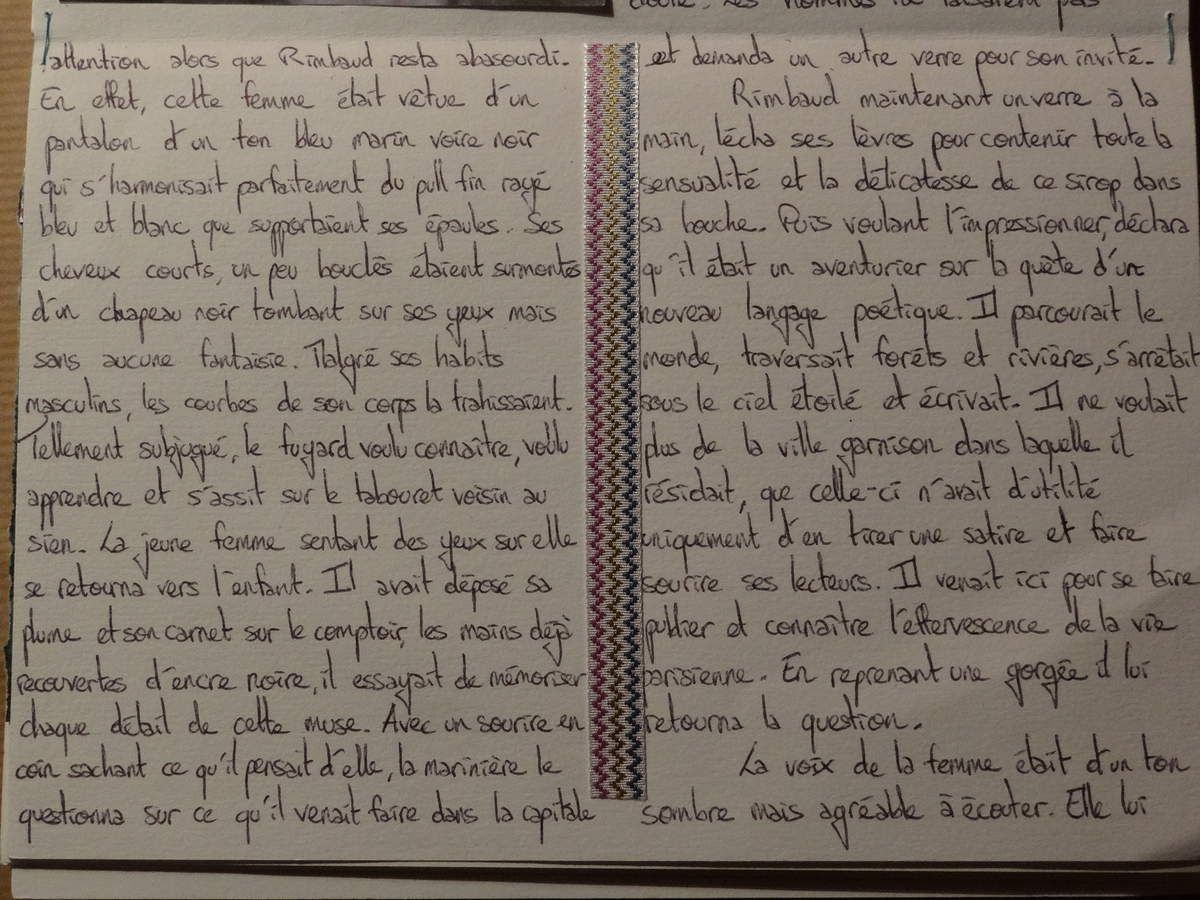 attention alors que Rimbaud resta abasourdi.
En effet, cette femme était vêtue d'un
pantalon d'un ton bleu marin voire noir
qui s'harmonisait parfaitement du pull fin rayé
bleu et blanc que supportaient ses épaules. Ses
cheveux courts, un peu bouclés étaient surmontés
d'un chapeau noir tombant sur ses yeux mais
sans aucune fantaisie. Malgré ses habits
masculins, les courbes de son corps la trahissaient.
Tellement subjugué, le fuyard voulu connaître, voulu
apprendre et s'assit sur le tabouret voisin au
sien. La jeune femme sentant des yeux sur elle
se retourna vers l'enfant. Il avait déposé sa
plume et son carnet sur le comptoir, les mains déjà
recouvertes d'encre noire, il essayait de mémoriser
chaque détail de cette muse. Avec un sourire en
coin sachant ce qu'il pensait d'elle, la marinière le
questionna sur ce qu'il venait faire dans la capitale
et demanda un autre verre pour son invité.
Rimbaud maintenant un verre à la
main, lécha ses lèvres pour contenir toute la
sensualité et la délicatesse de ce sirop dans
sa bouche. Puis voulant l'impressionner, déclara
qu'il était un aventurier sur la quête d'un
nouveau langage poétique. Il parcourait le
monde, traversait forêts et rivières, s'arrêtait
sous le ciel étoilé et écrivait. Il ne voulait
plus de la ville garnison dans laquelle il
résidait, que celle-ci n'avait d'utilité
uniquement d'en tirer une satire et faire
sourire ses lecteurs. Il venait ici pour se faire
publier et connaître l'effervescence de la vie
parisienne. En reprenant une gorgée il lui
retourna la question.
La voix de la femme était d'un ton
sombre mais agréable à écouter. Elle lui